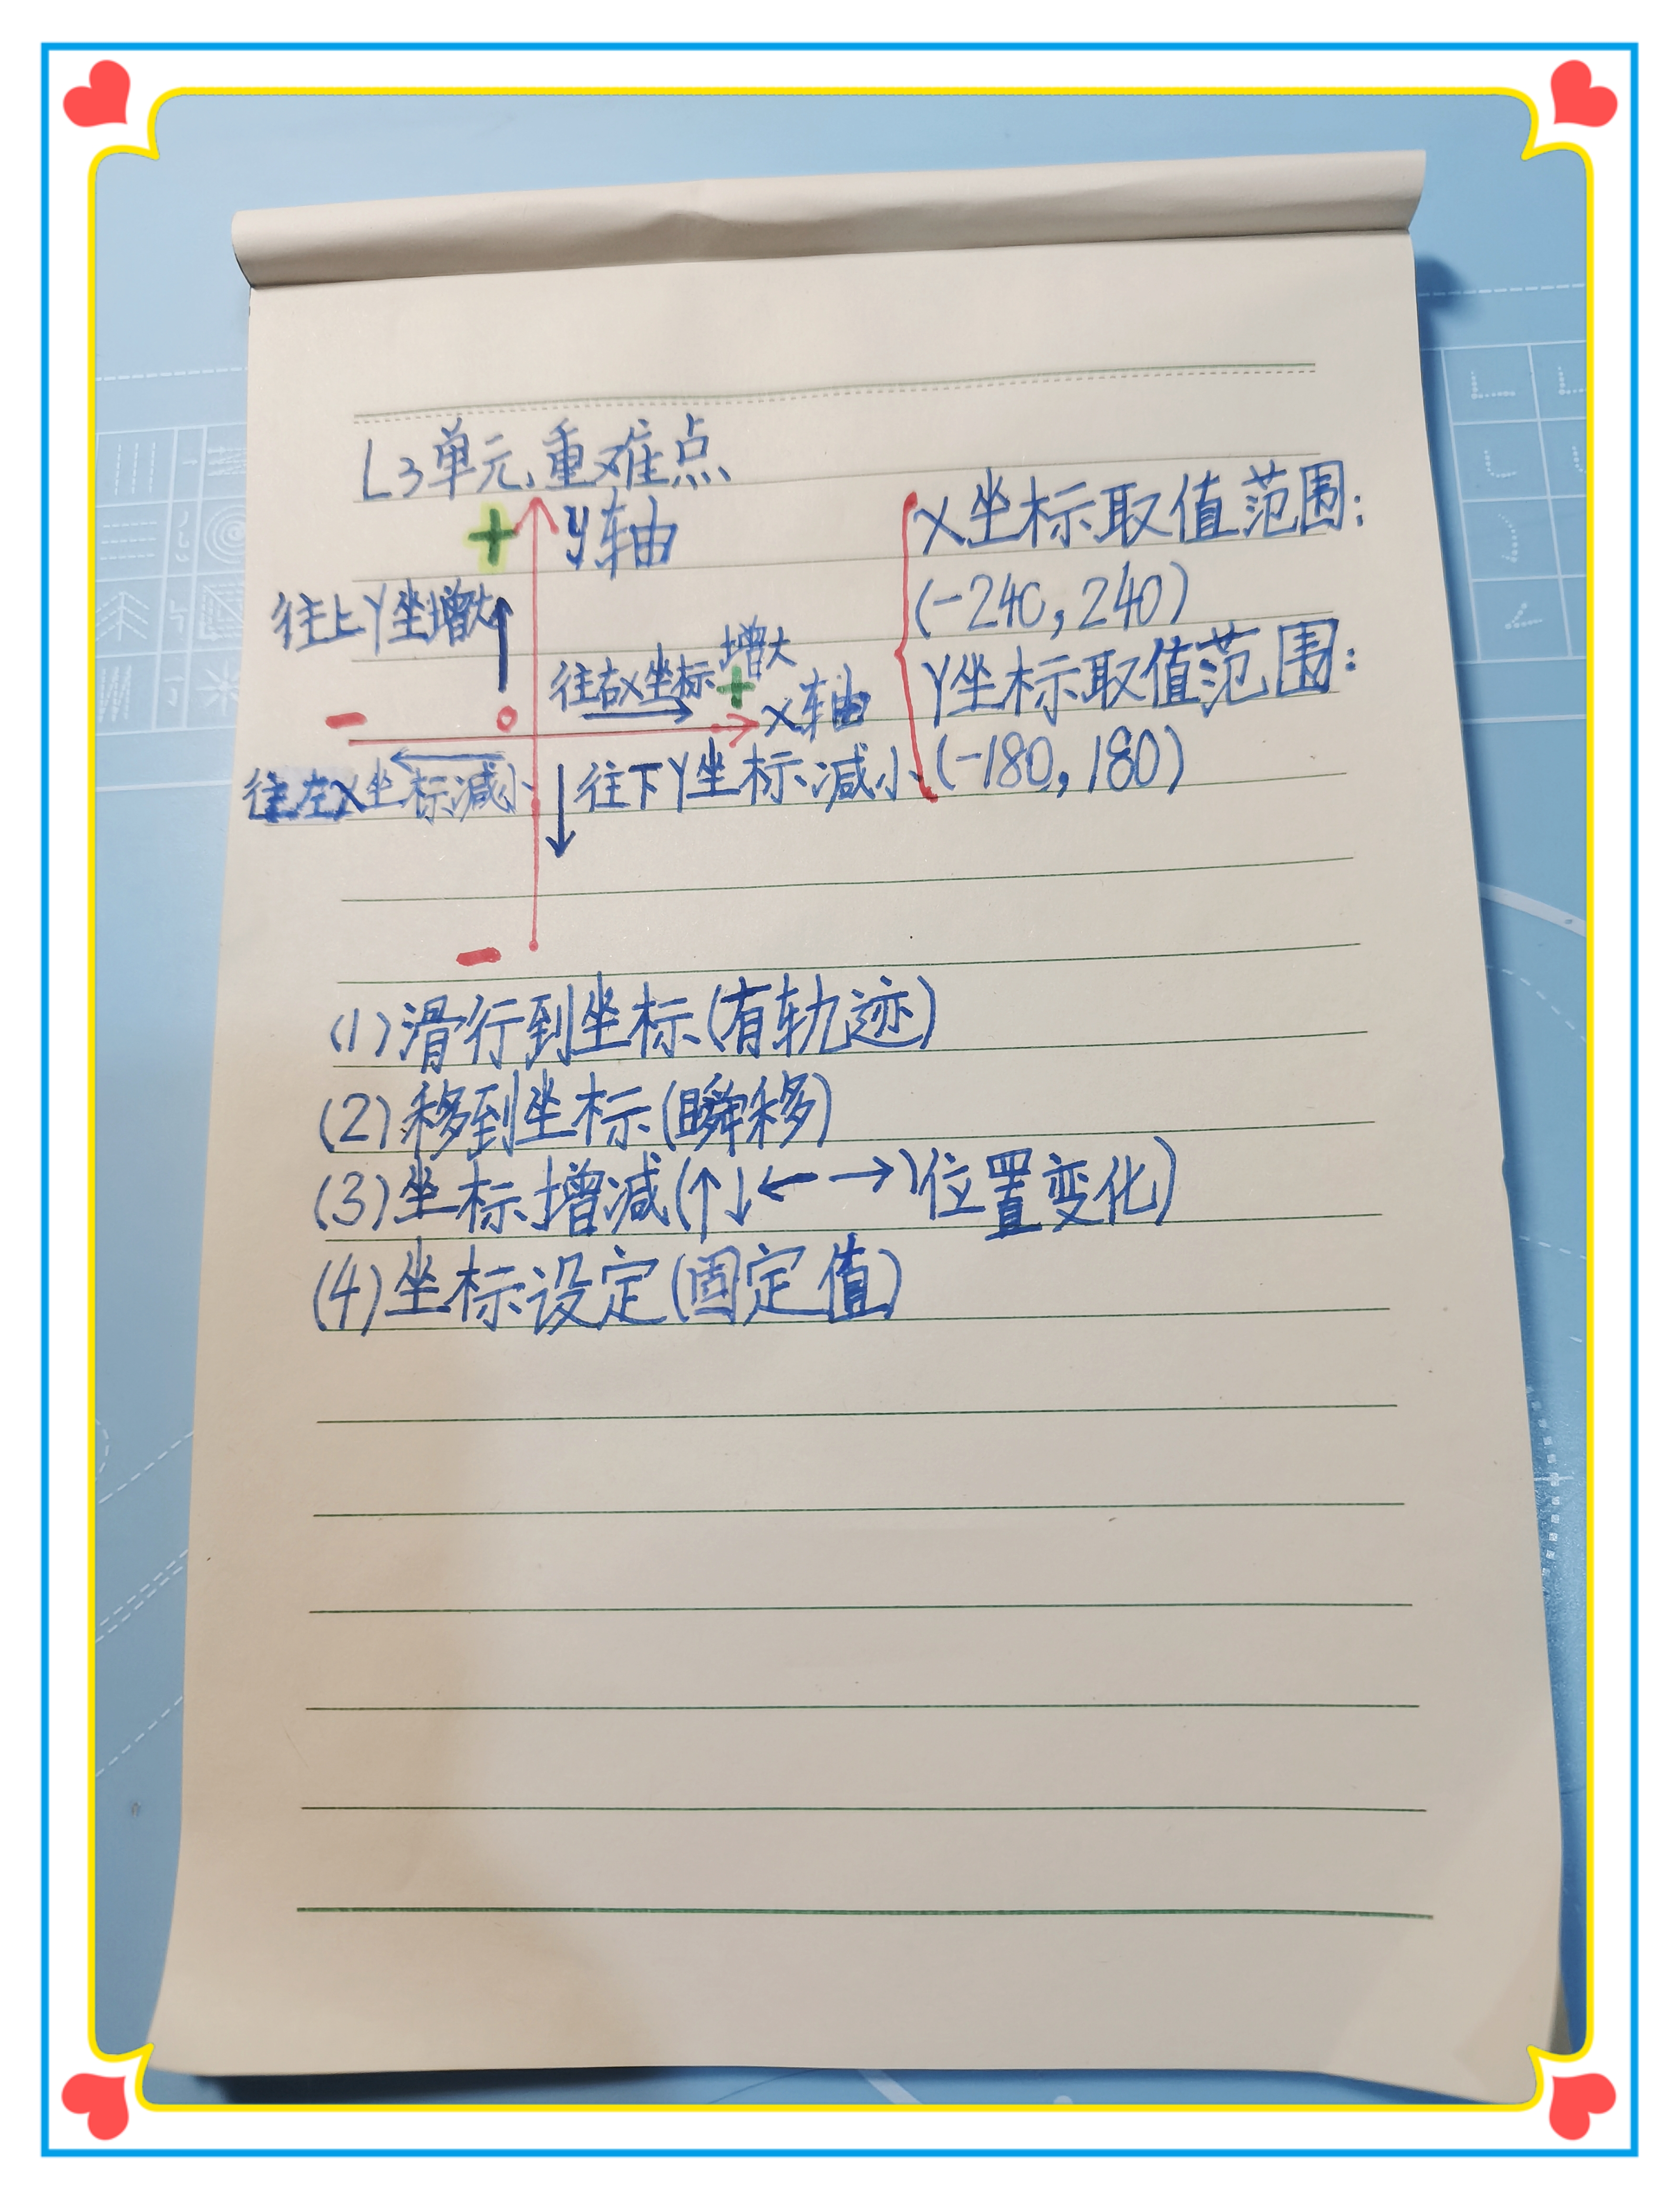 L3单元、重难点
+ y轴
x坐标取值范围:
(-240,240)
Y坐标取值范围:
(-180,180)
往上Y坐增大
往右x坐标增大
+
- 0 x轴
往左x坐标减小
往下Y坐标减小
-
(1)滑行到坐标(有轨迹)
(2)移到坐标(瞬移)
(3)坐标增减(↑↓←→)位置变化)
(4)坐标设定(固定值)